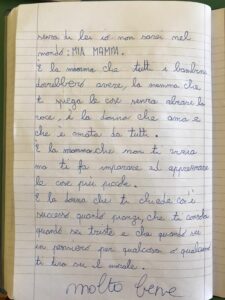 senza di lei io non sarei nel
mondo: MIA MAMMA.
È la mamma che tutti i bambini
dovrebbero avere, la mamma che
ti spiega le cose senza alzare la
voce, è la donna che ama e
che è amata da tutti.
È la mamma che non ti vizia
ma ti fa imparare ad apprezzare
le cose più piccole.
È la donna che ti chiede cos'è
successo quando piangi, che ti consola
quando sei triste e che quando sei
in pensiero per qualcosa o qualcuno
ti tira su il morale.
molto bene